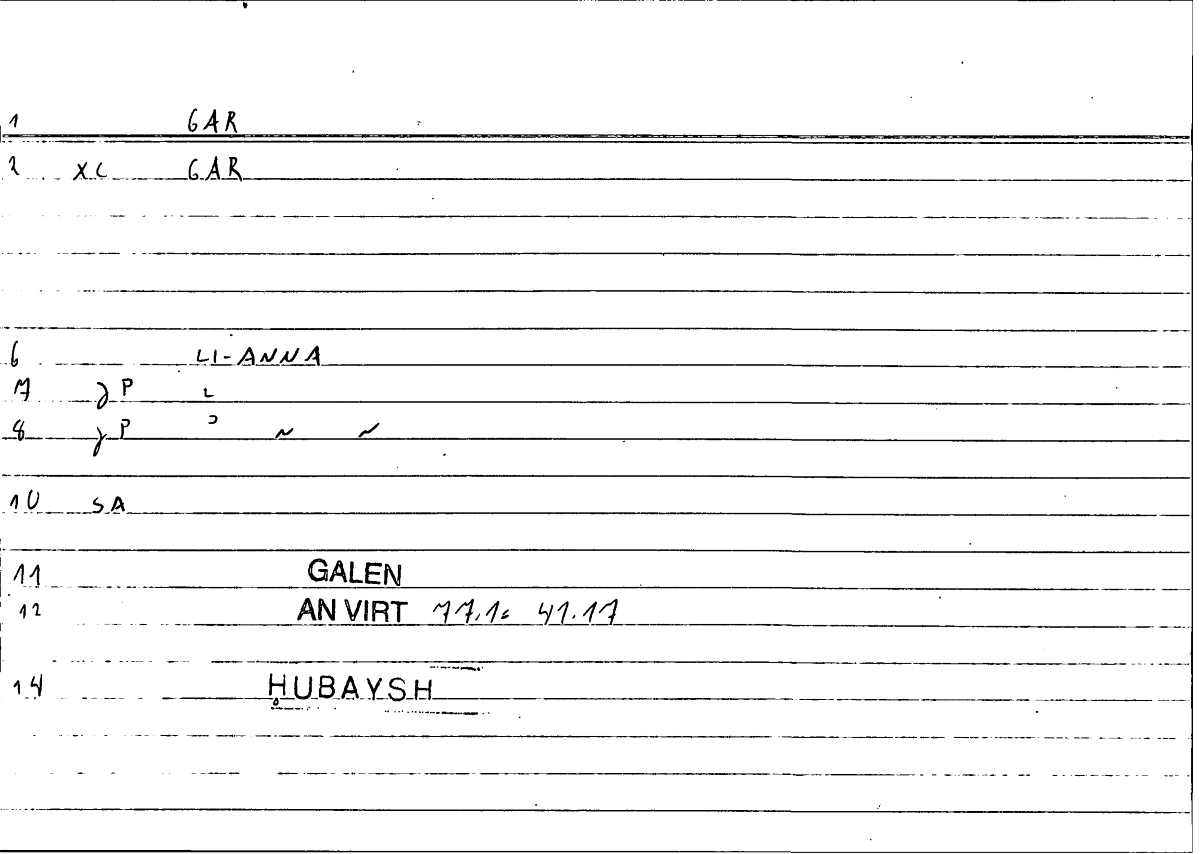 1 GAR
2 XC GAR
6 LI-ANNA
7 γP
8 γP ~ ~
10 SA
11 GALEN
12 AN VIRT 77.1: 41.17
14 ḤUBAYSH